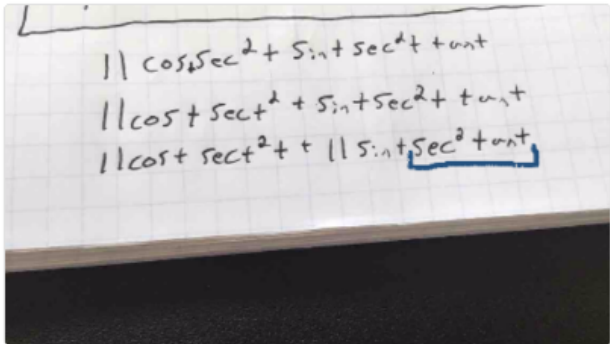 11 cost sec² t sint sec² t tant
11cost sect² + sint sec² t tant
11cost sect² t + 11 sint sec² tant